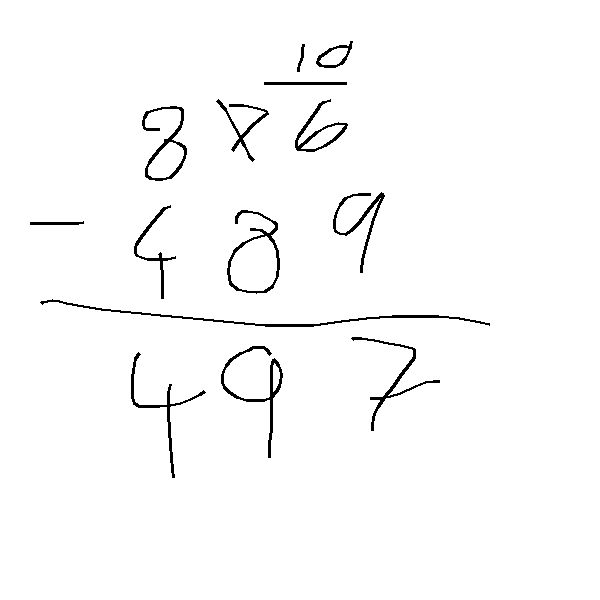 10
876
- 489
497